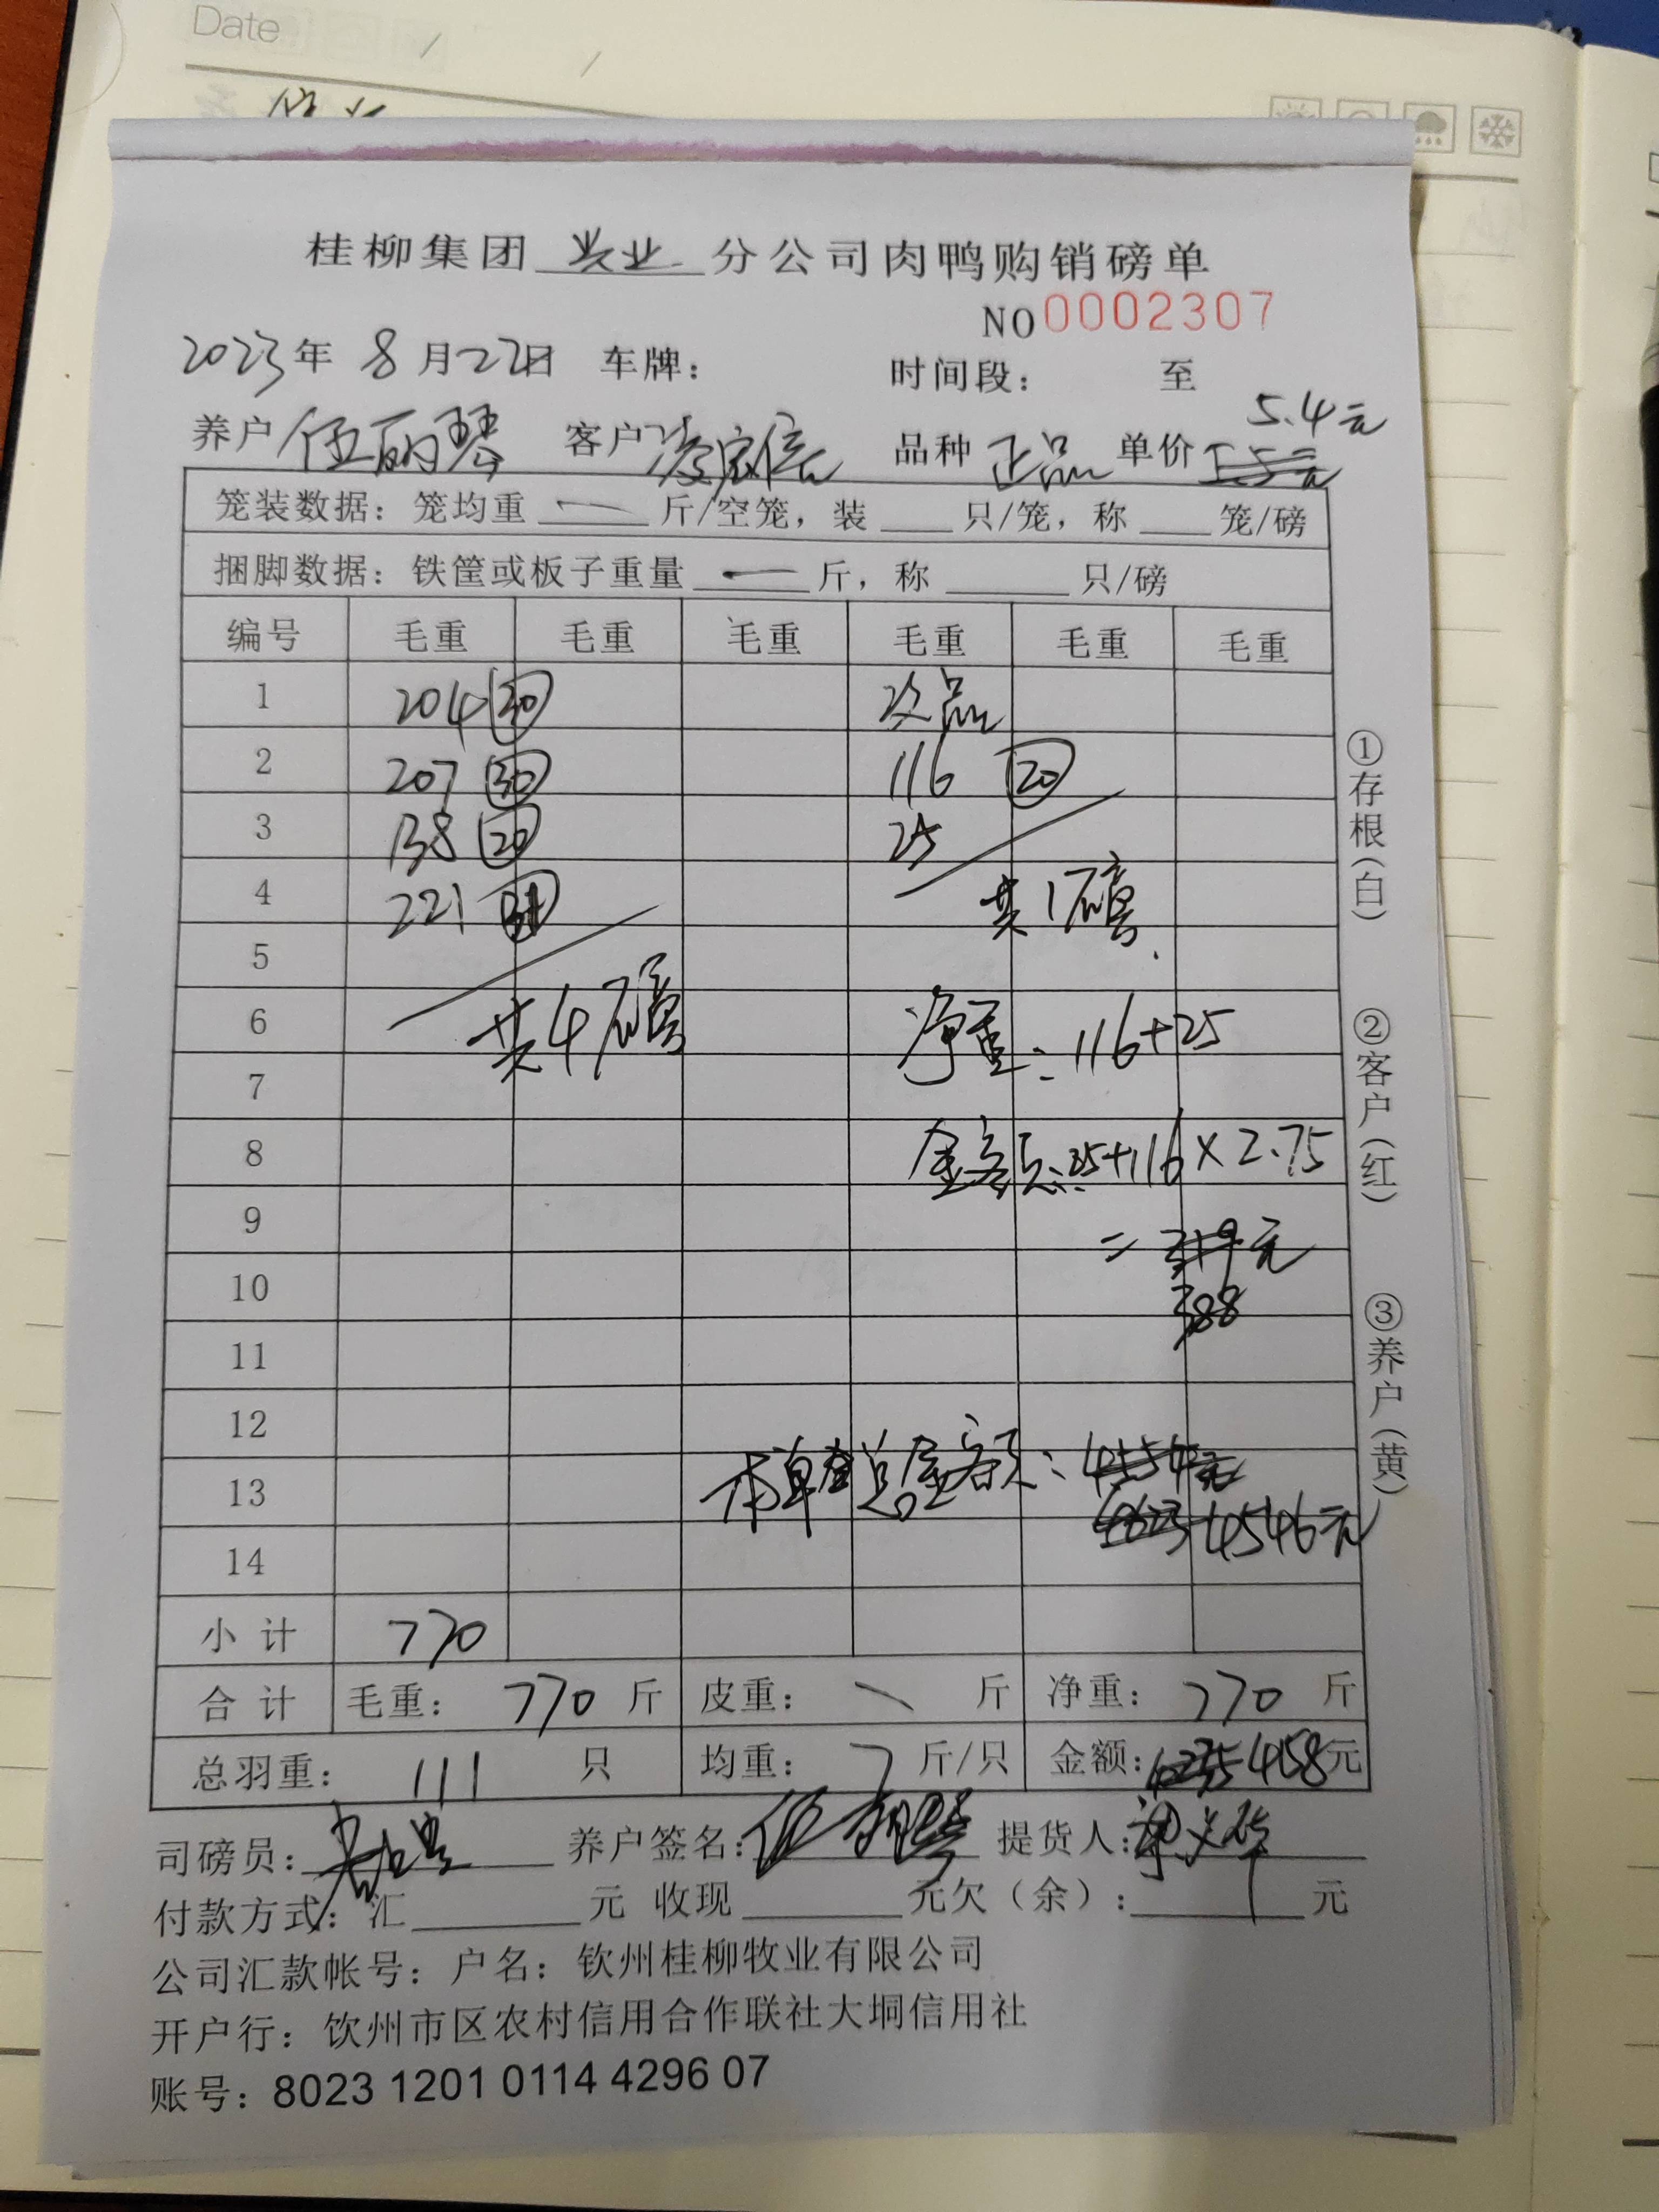 Date / /
桂柳集团 兴业 分公司肉鸭购销磅单
NO 0002307
2023年 8月22日 车牌： 时间段： 至
5.4元
养户 伍丽琴 客户 品种 正品 单价 5.5元
笼装数据：笼均重 一 斤/空笼，装 只/笼，称 笼/磅
捆脚数据：铁筐或板子重量 一 斤，称 只/磅
编号 毛重 毛重 毛重 毛重 毛重 毛重
1 204 30 次品
2 207 30 116 20
3 138 20 25
4 221 31 共1磅
5
6 共4磅 净重：116+25
7
8 金额：25+116×2.75
9 = 319元
10 388
11
12
13 本单总金额：4554元
4623 4546元
14
小计 770
合计 毛重：770斤 皮重：斤 净重：770斤
总羽重：111 只 均重：7 斤/只 金额：4235 4158元
司磅员： 养户签名：伍丽琴 提货人：
付款方式：汇 元 收现 元欠（余）： 元
公司汇款帐号：户名：钦州桂柳牧业有限公司
开户行：钦州市区农村信用合作联社大垌信用社
账号：8023 1201 0114 4296 07
①存根（白）
②客户（红）
③养户（黄）